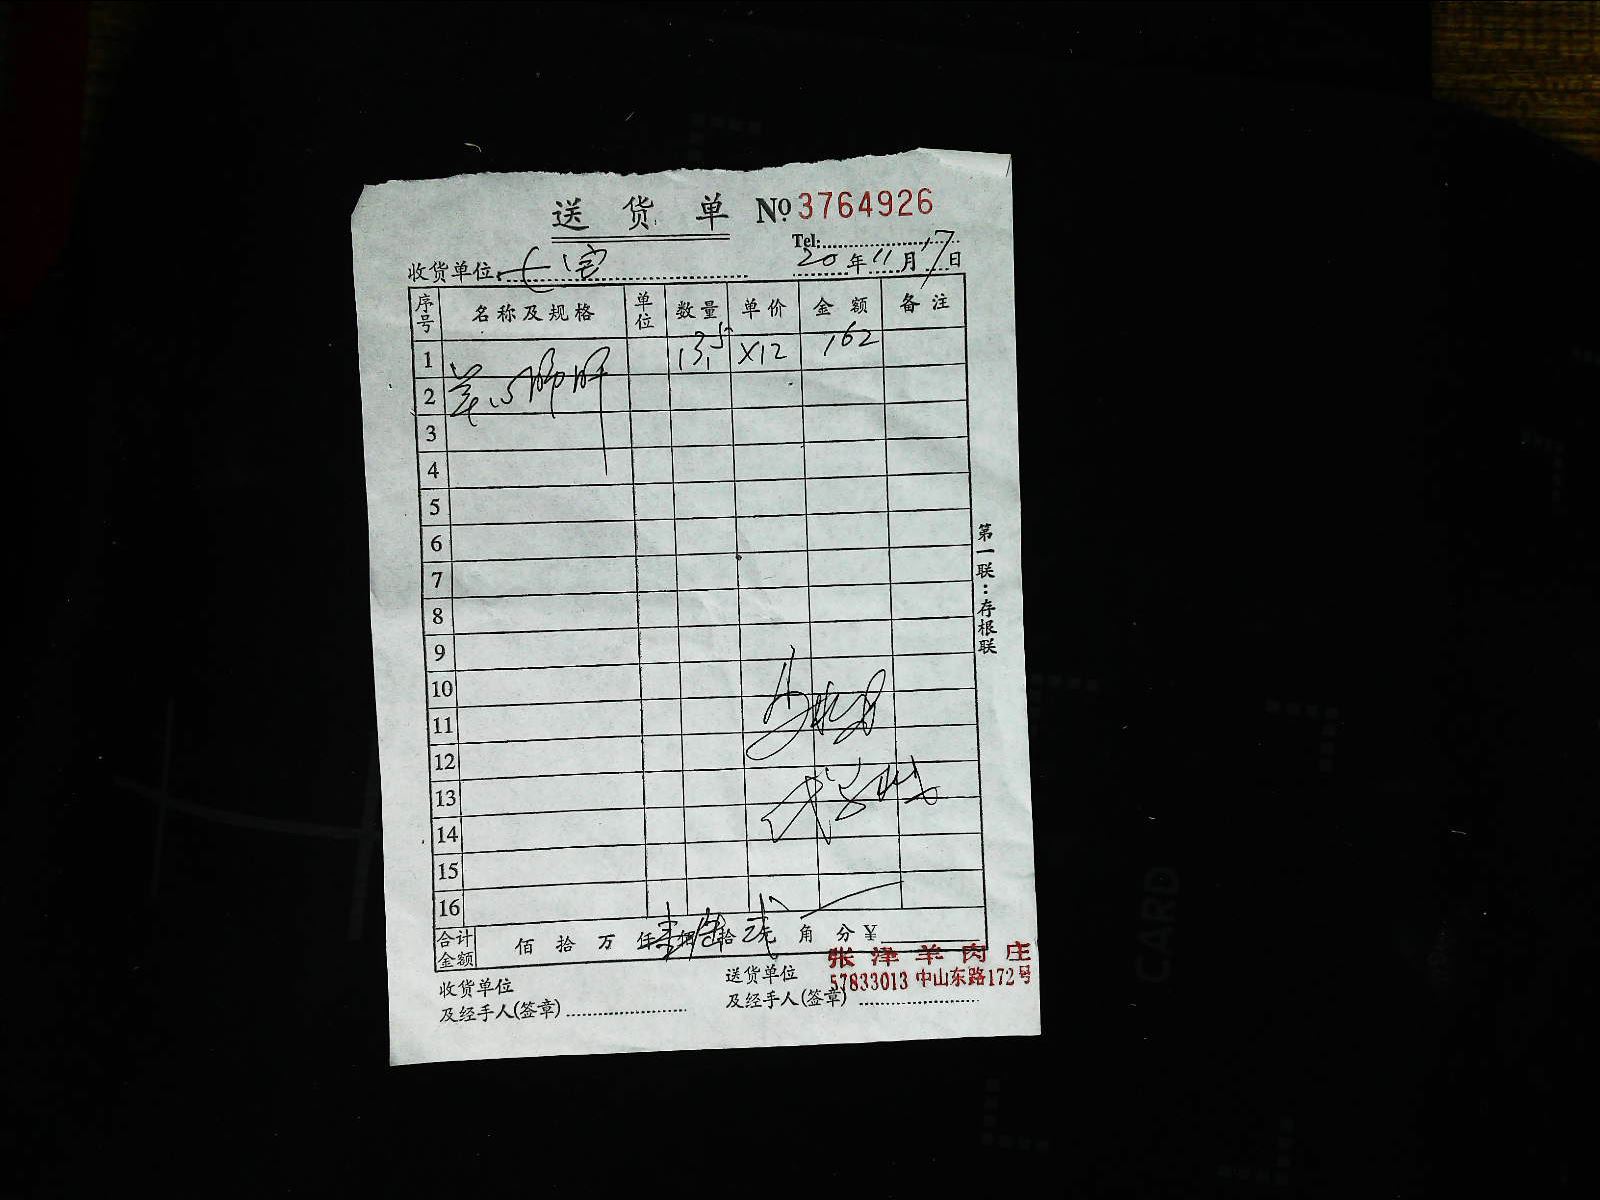 送货单 №3764926
Tel:
收货单位 20年11月17日
序号 名称及规格 单位 数量 单价 金额 备注
1 13.5 X12 162
2 羊心肺肝
3
4
5
6
7
8
9
10
11
12
13
14
15
16
合计金额 佰 拾 万 仟 壹佰 陆拾 贰元 角 分 ¥
收货单位 送货单位
及经手人(签章) 及经手人(签章)
张泽羊肉庄
57833013 中山东路172号
第一联:存根联